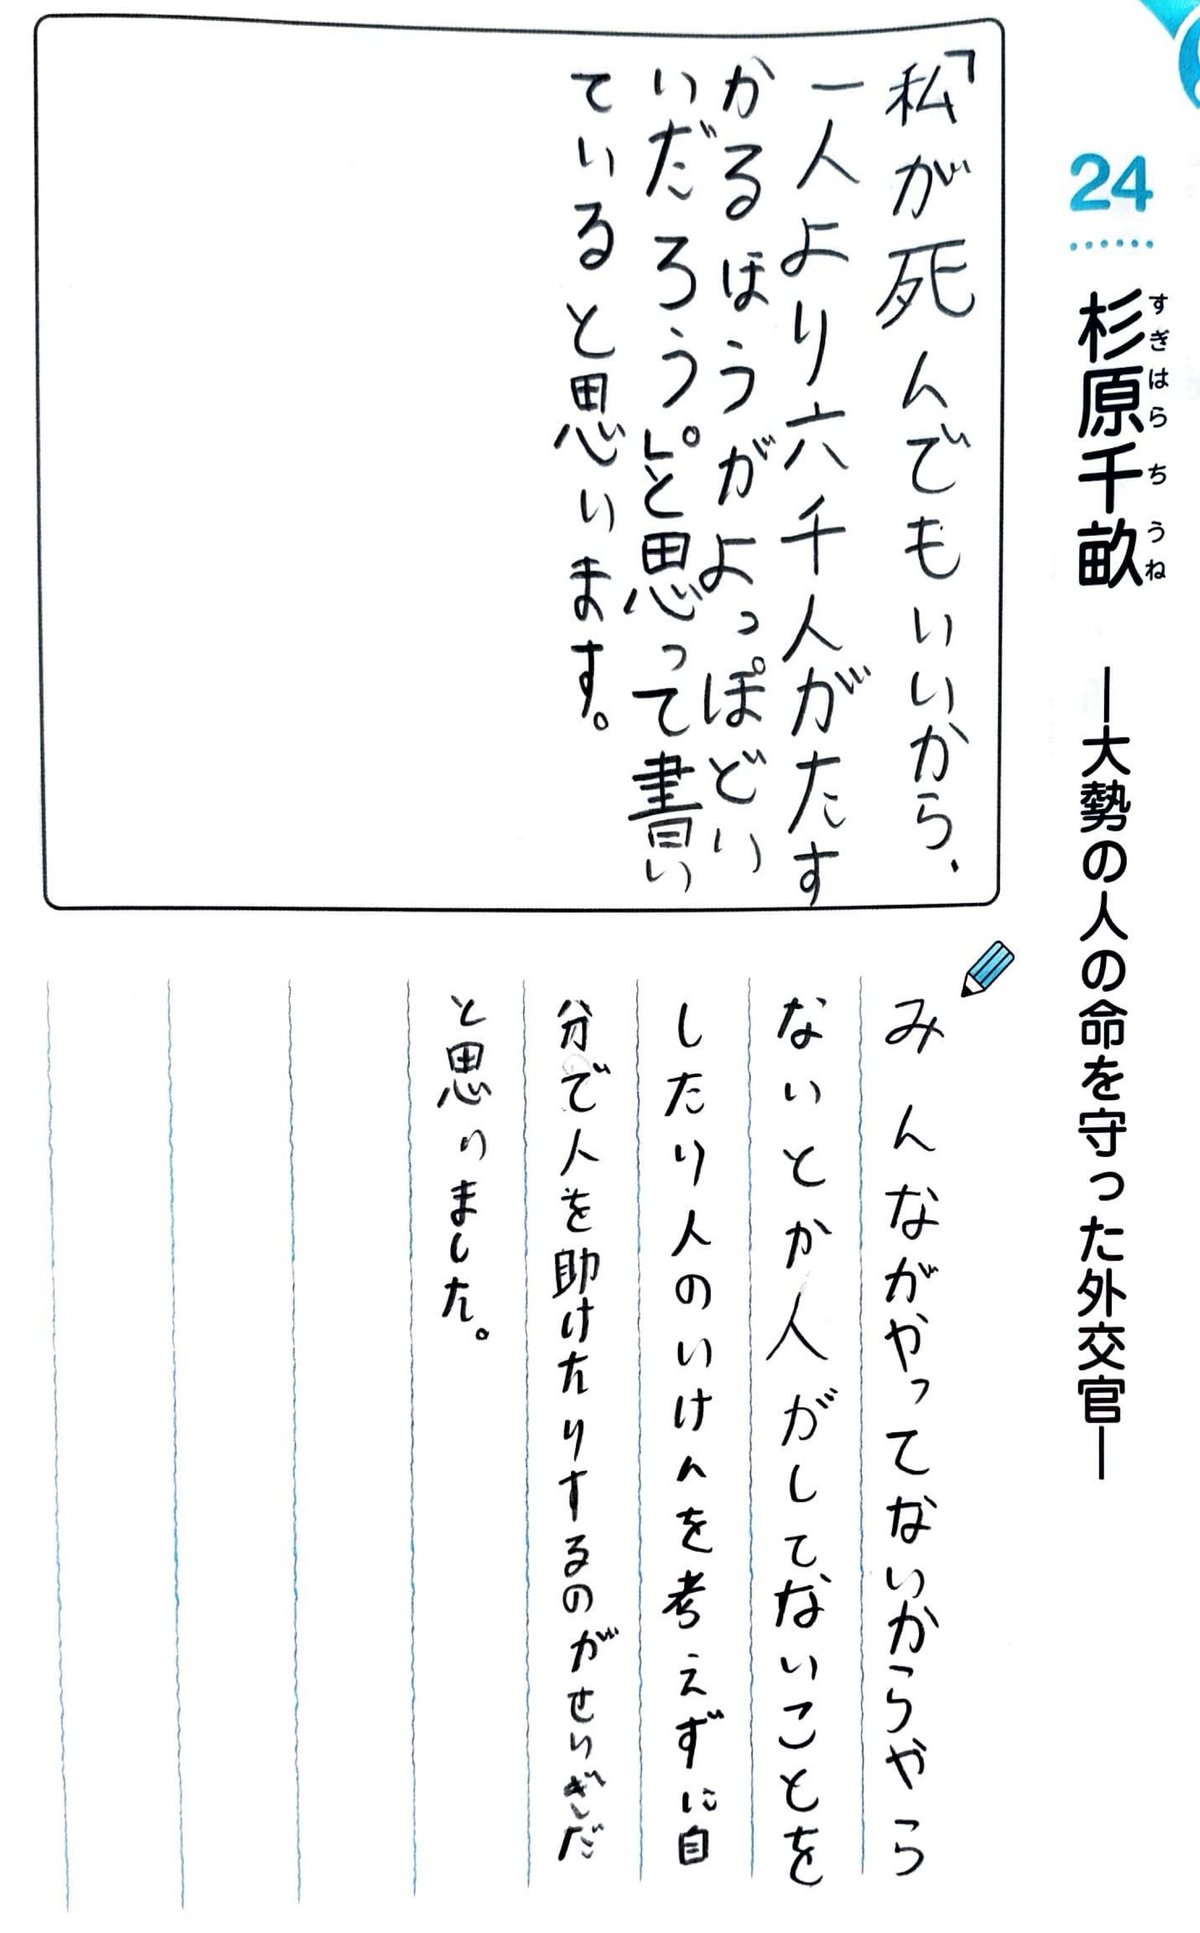 24 杉原千畝 ―大勢の人の命を守った外交官―
すぎはらちうね
「私が死んでもいいから、
一人より六千人がたす
かるほうがよっぽどい
いだろう。」と思って書い
ていると思います。
みんながやってないからやら
ないとか人がしてないことを
したり人のいけんを考えずに自
分で人を助けたりするのがせいぎだ
と思いました。